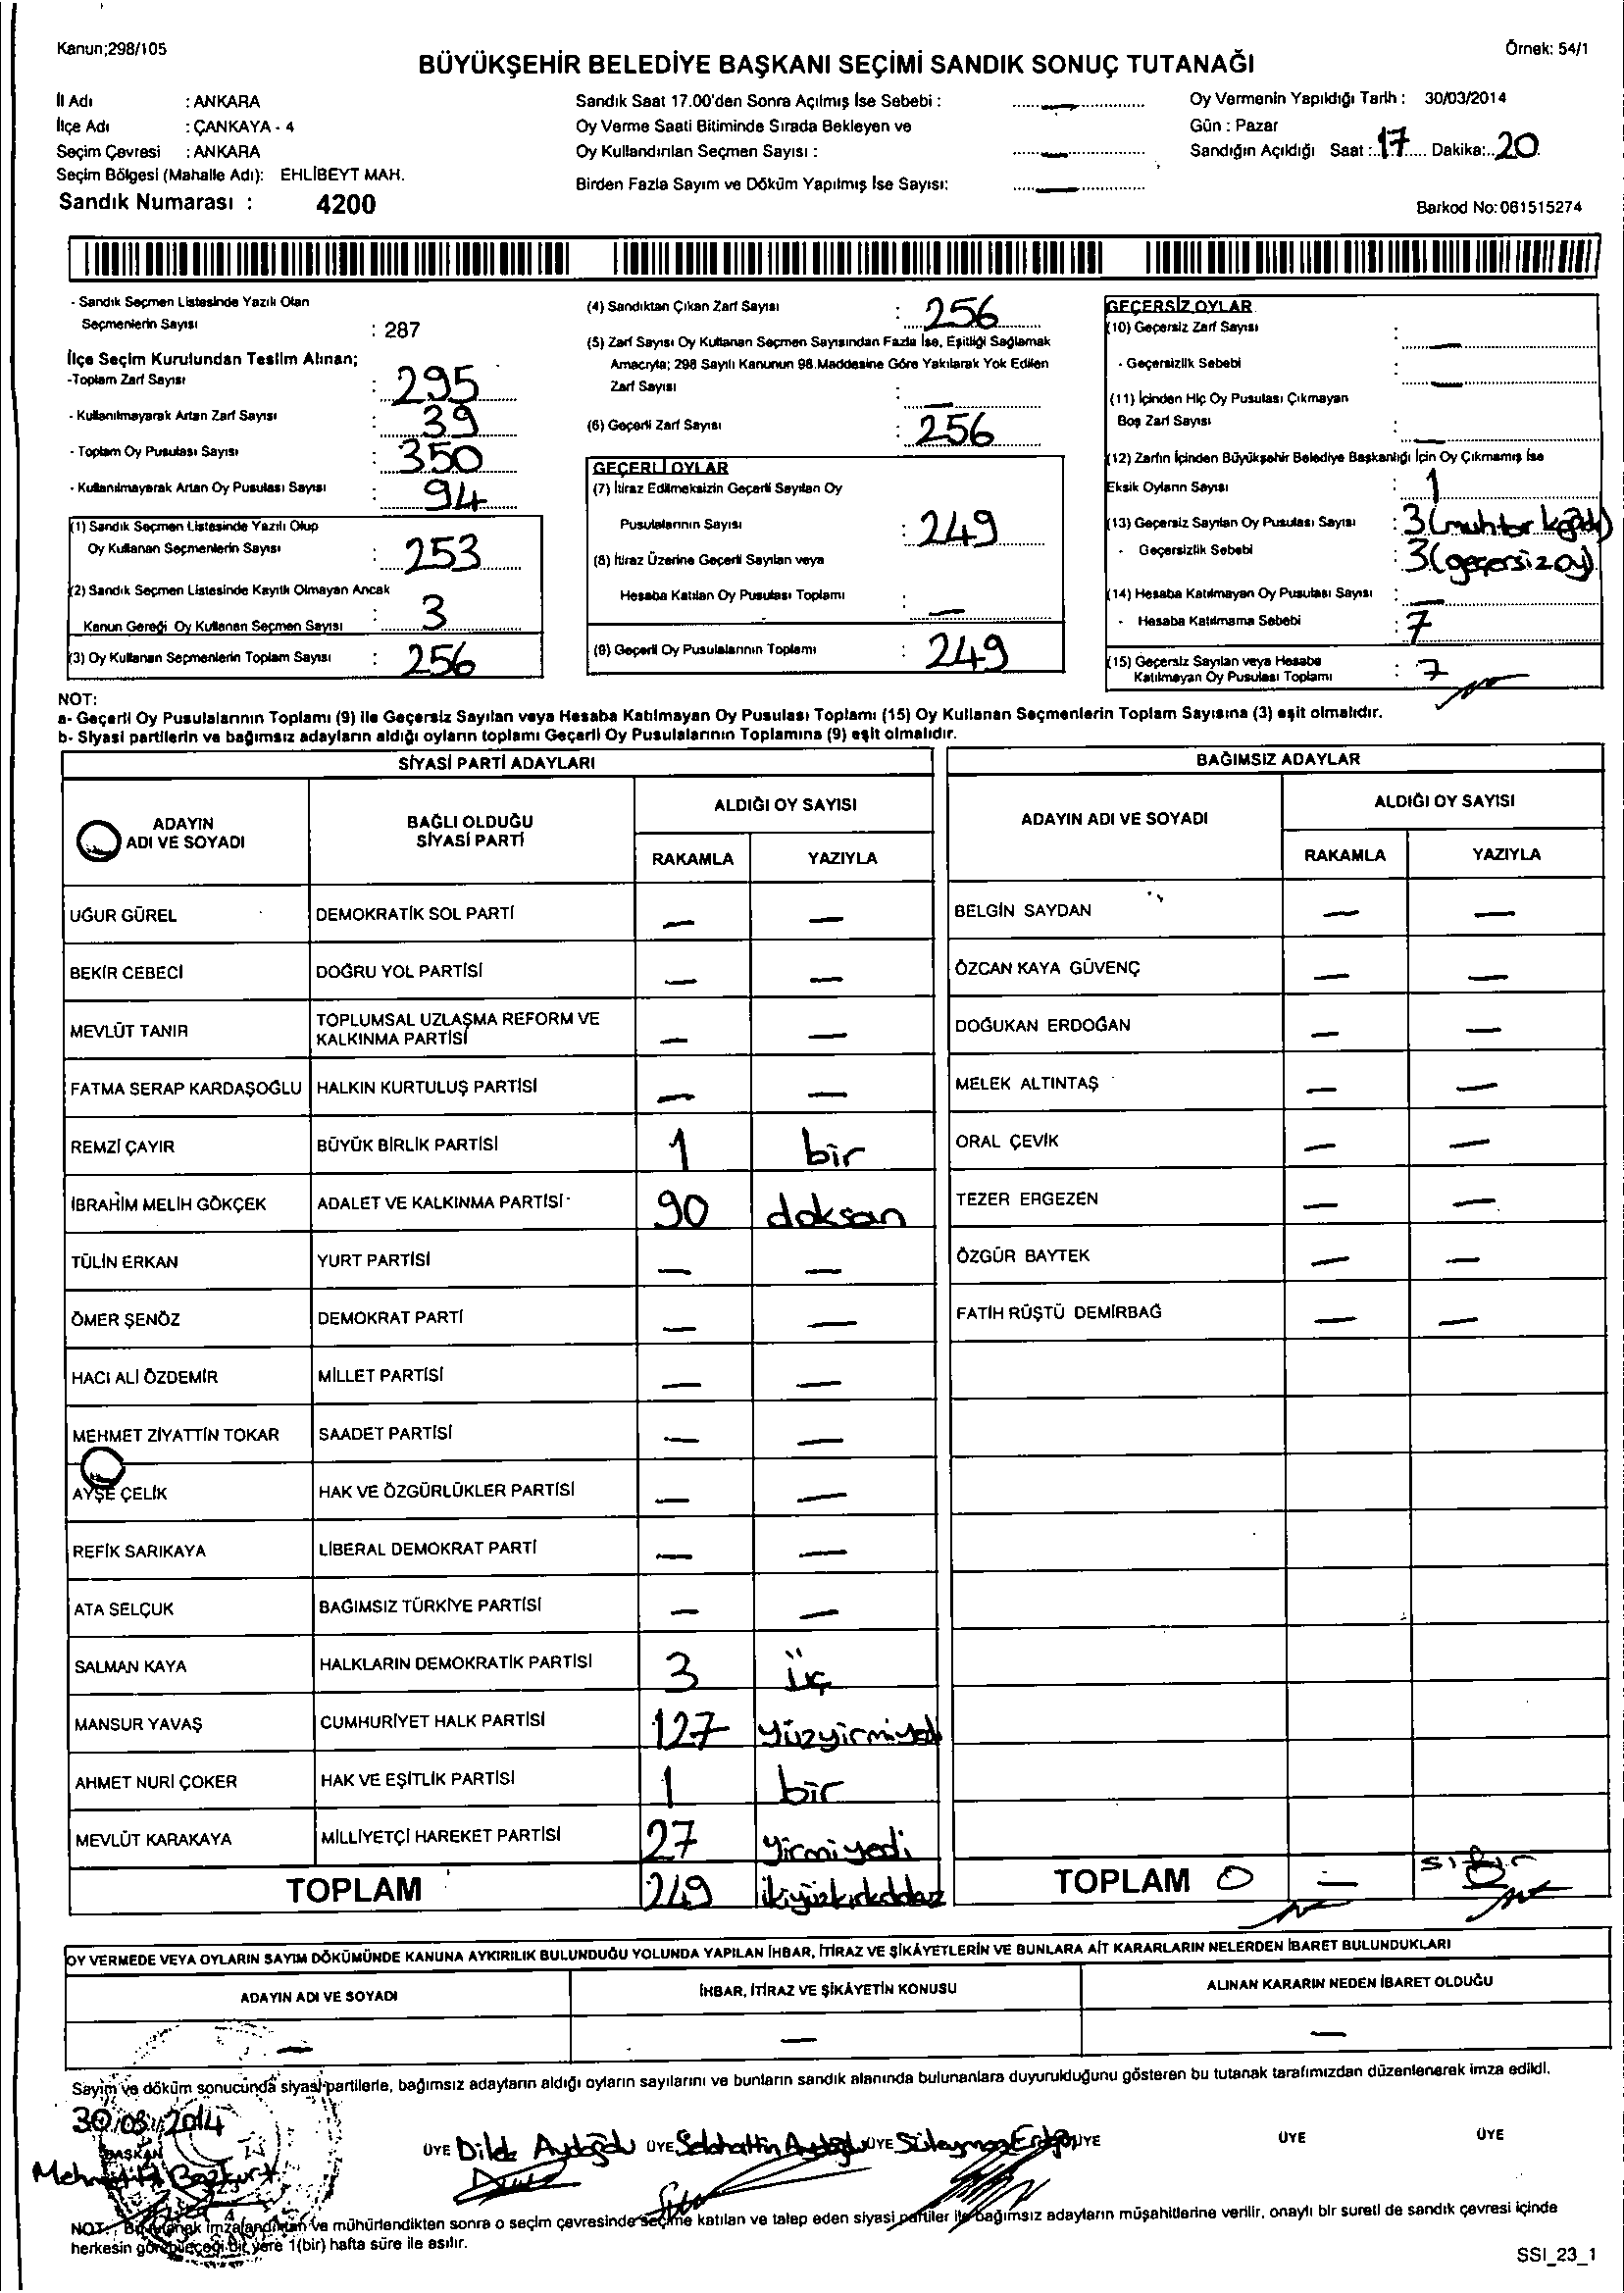 Kanun;298/105
Örnek: 54/1
BÜYÜKŞEHİR BELEDİYE BAŞKANI SEÇİMİ SANDIK SONUÇ TUTANAĞI
İl Adı : ANKARA
İlçe Adı : ÇANKAYA - 4
Seçim Çevresi : ANKARA
Seçim Bölgesi (Mahalle Adı): EHLİBEYT MAH.
Sandık Numarası : 4200
Sandık Saat 17.00'den Sonra Açılmış İse Sebebi : —
Oy Verme Saati Bitiminde Sırada Bekleyen ve
Oy Kullandırılan Seçmen Sayısı : —
Birden Fazla Sayım ve Döküm Yapılmış İse Sayısı: —
Oy Vermenin Yapıldığı Tarih : 30/03/2014
Gün : Pazar
Sandığın Açıldığı Saat : 17 Dakika: 20
Barkod No: 061515274
- Sandık Seçmen Listesinde Yazılı Olan
Seçmenlerin Sayısı : 287
İlçe Seçim Kurulundan Teslim Alınan;
-Toplam Zarf Sayısı : 295
- Kullanılmayarak Artan Zarf Sayısı : 39
- Toplam Oy Pusulası Sayısı : 350
- Kullanılmayarak Artan Oy Pusulası Sayısı : 94
(1) Sandık Seçmen Listesinde Yazılı Olup
Oy Kullanan Seçmenlerin Sayısı : 253
(2) Sandık Seçmen Listesinde Kayıtlı Olmayan Ancak
Kanun Gereği Oy Kullanan Seçmen Sayısı : 3
(3) Oy Kullanan Seçmenlerin Toplam Sayısı : 256
(4) Sandıktan Çıkan Zarf Sayısı : 256
(5) Zarf Sayısı Oy Kullanan Seçmen Sayısından Fazla İse, Eşitliği Sağlamak
Amacıyla; 298 Sayılı Kanunun 98.Maddesine Göre Yakılarak Yok Edilen
Zarf Sayısı : —
(6) Geçerli Zarf Sayısı : 256
GEÇERLİ OYLAR
(7) İtiraz Edilmeksizin Geçerli Sayılan Oy
Pusulalarının Sayısı : 249
(8) İtiraz Üzerine Geçerli Sayılan veya
Hesaba Katılan Oy Pusulası Toplamı : —
(9) Geçerli Oy Pusulalarının Toplamı : 249
GEÇERSİZ OYLAR
(10) Geçersiz Zarf Sayısı : —
- Geçersizlik Sebebi : —
(11) İçinden Hiç Oy Pusulası Çıkmayan
Boş Zarf Sayısı : —
(12) Zarfın İçinden Büyükşehir Belediye Başkanlığı İçin Oy Çıkmamış İse
Eksik Oyların Sayısı : 1
(13) Geçersiz Sayılan Oy Pusulası Sayısı : 3(muhtar kağıdı)
- Geçersizlik Sebebi : 3(geçersiz oy)
(14) Hesaba Katılmayan Oy Pusulası Sayısı : —
- Hesaba Katılmama Sebebi : 7
(15) Geçersiz Sayılan veya Hesaba
Katılmayan Oy Pusulası Toplamı : 7
NOT:
a- Geçerli Oy Pusulalarının Toplamı (9) ile Geçersiz Sayılan veya Hesaba Katılmayan Oy Pusulası Toplamı (15) Oy Kullanan Seçmenlerin Toplam Sayısına (3) eşit olmalıdır.
b- Siyasi partilerin ve bağımsız adayların aldığı oyların toplamı Geçerli Oy Pusulalarının Toplamına (9) eşit olmalıdır.
SİYASİ PARTİ ADAYLARI
ADAYIN ADI VE SOYADI BAĞLI OLDUĞU SİYASİ PARTİ ALDIĞI OY SAYISI
RAKAMLA YAZIYLA
UĞUR GÜREL DEMOKRATİK SOL PARTİ — —
BEKİR CEBECİ DOĞRU YOL PARTİSİ — —
MEVLÜT TANIR TOPLUMSAL UZLAŞMA REFORM VE KALKINMA PARTİSİ — —
FATMA SERAP KARDAŞOĞLU HALKIN KURTULUŞ PARTİSİ — —
REMZİ ÇAYIR BÜYÜK BİRLİK PARTİSİ 1 bir
İBRAHİM MELİH GÖKÇEK ADALET VE KALKINMA PARTİSİ 90 doksan
TÜLİN ERKAN YURT PARTİSİ — —
ÖMER ŞENÖZ DEMOKRAT PARTİ — —
HACI ALİ ÖZDEMİR MİLLET PARTİSİ — —
MEHMET ZİYATTİN TOKAR SAADET PARTİSİ — —
AYŞE ÇELİK HAK VE ÖZGÜRLÜKLER PARTİSİ — —
REFİK SARIKAYA LİBERAL DEMOKRAT PARTİ — —
ATA SELÇUK BAĞIMSIZ TÜRKİYE PARTİSİ — —
SALMAN KAYA HALKLARIN DEMOKRATİK PARTİSİ 3 üç
MANSUR YAVAŞ CUMHURİYET HALK PARTİSİ 127 yüzyirmiyedi
AHMET NURİ ÇOKER HAK VE EŞİTLİK PARTİSİ 1 bir
MEVLÜT KARAKAYA MİLLİYETÇİ HAREKET PARTİSİ 27 yirmiyedi
TOPLAM 249 ikiyüzkırkdokuz
BAĞIMSIZ ADAYLAR
ADAYIN ADI VE SOYADI ALDIĞI OY SAYISI
RAKAMLA YAZIYLA
BELGİN SAYDAN — —
ÖZCAN KAYA GÜVENÇ — —
DOĞUKAN ERDOĞAN — —
MELEK ALTINTAŞ — —
ORAL ÇEVİK — —
TEZER ERGEZEN — —
ÖZGÜR BAYTEK — —
FATİH RÜŞTÜ DEMİRBAĞ — —
TOPLAM 0 — sıfır
OY VERMEDE VEYA OYLARIN SAYIM DÖKÜMÜNDE KANUNA AYKIRILIK BULUNDUĞU YOLUNDA YAPILAN İHBAR, İTİRAZ VE ŞİKÂYETLERİN VE BUNLARA AİT KARARLARIN NELERDEN İBARET BULUNDUKLARI
ADAYIN ADI VE SOYADI İHBAR, İTİRAZ VE ŞİKÂYETİN KONUSU ALINAN KARARIN NEDEN İBARET OLDUĞU
— — —
Sayım ve döküm sonucunda siyasi partilerle, bağımsız adayların aldığı oyların sayılarını ve bunların sandık alanında bulunanlara duyurulduğunu gösteren bu tutanak tarafımızdan düzenlenerek imza edildi.
30/03/2014
BAŞKAN ÜYE ÜYE Selahattin ÜYE Süleyman ÜYE ÜYE ÜYE
Bozkurt
NOT: Bu tutanak imzalandıktan ve mühürlendikten sonra o seçim çevresinde seçime katılan ve talep eden siyasi partiler ile bağımsız adayların müşahitlerine verilir, onaylı bir sureti de sandık çevresi içinde
herkesin görebileceği bir yere 1(bir) hafta süre ile asılır.
SSI_23_1